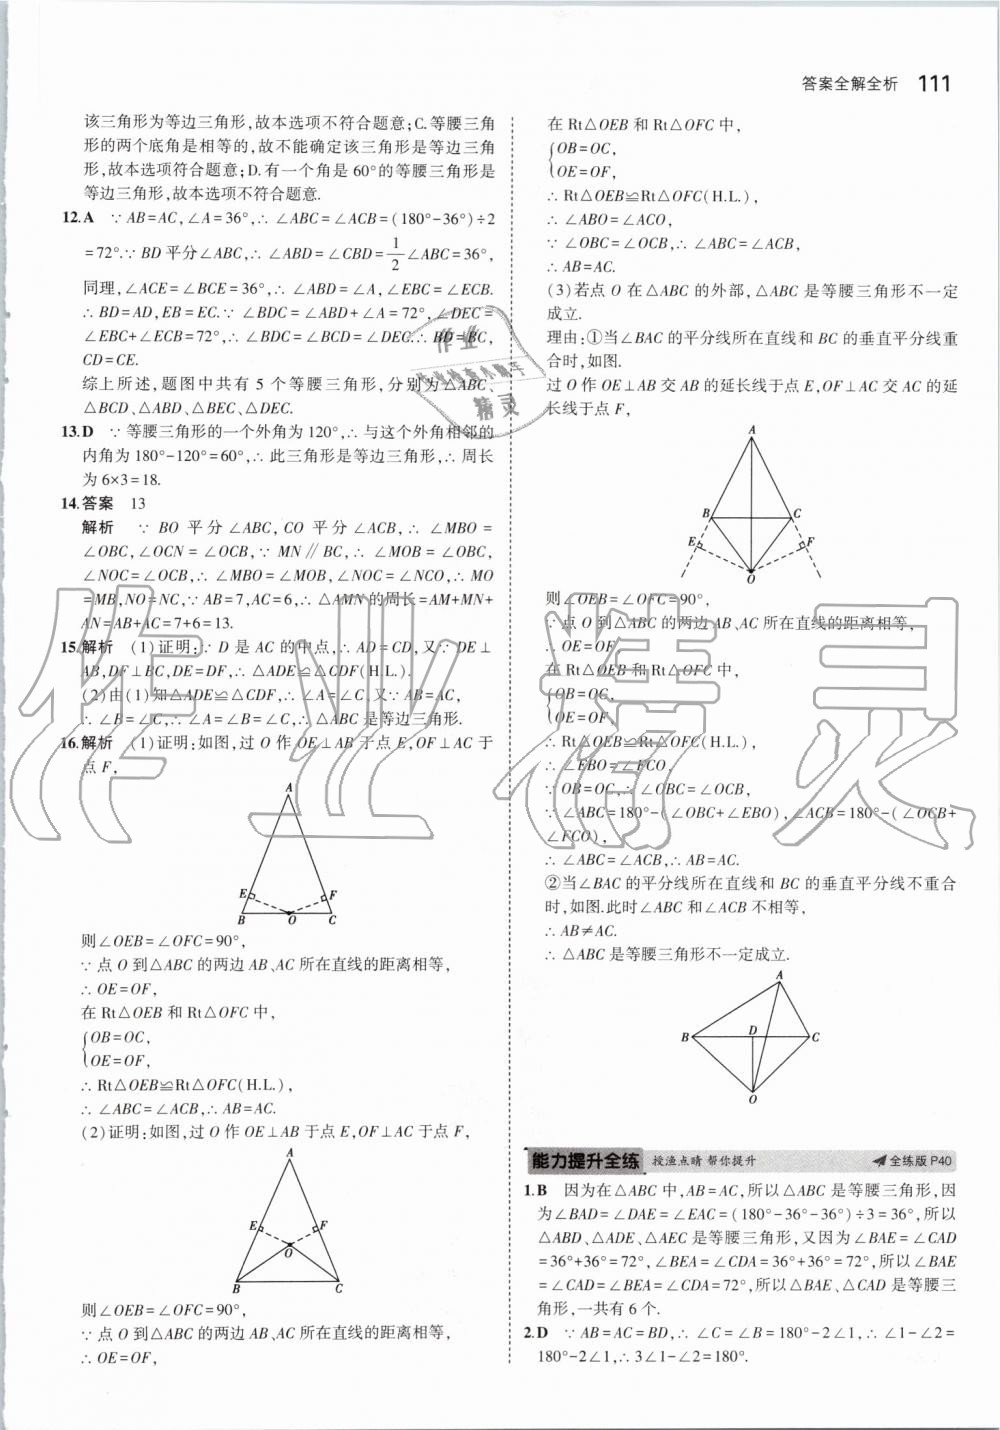 答案全解全析 111
该三角形为等边三角形,故本选项不符合题意;C.等腰三角
形的两个底角是相等的,故不能确定该三角形是等边三角
形,故本选项符合题意;D.有一个角是60°的等腰三角形是
等边三角形,故本选项不符合题意.
12.A ∵AB=AC,∠A=36°,∴∠ABC=∠ACB=(180°-36°)÷2
=72°.∵BD平分∠ABC,∴∠ABD=∠CBD=1/2∠ABC=36°,
同理,∠ACE=∠BCE=36°,∴∠ABD=∠A,∠EBC=∠ECB.
∴BD=AD,EB=EC.∵∠BDC=∠ABD+∠A=72°,∠DEC=
∠EBC+∠ECB=72°,∴∠BDC=∠BCD=∠DEC.∴BD=BC,
CD=CE.
综上所述,题图中共有5个等腰三角形,分别为△ABC、
△BCD、△ABD、△BEC、△DEC.
13.D ∵等腰三角形的一个外角为120°,∴与这个外角相邻的
内角为180°-120°=60°,∴此三角形是等边三角形,∴周长
为6×3=18.
14.答案 13
解析 ∵BO平分∠ABC,CO平分∠ACB,∴∠MBO=
∠OBC,∠OCN=∠OCB,∵MN∥BC,∴∠MOB=∠OBC,
∠NOC=∠OCB,∴∠MBO=∠MOB,∠NOC=∠NCO,∴MO
=MB,NO=NC,∵AB=7,AC=6,∴△AMN的周长=AM+MN+
AN=AB+AC=7+6=13.
15.解析 (1)证明:∵D是AC的中点,∴AD=CD,又∵DE⊥
AB,DF⊥BC,DE=DF,∴△ADE≌△CDF(H.L.).
(2)由(1)知△ADE≌△CDF,∴∠A=∠C,又∵AB=AC,
∴∠B=∠C,∴∠A=∠B=∠C,∴△ABC是等边三角形.
16.解析 (1)证明:如图,过O作OE⊥AB于点E,OF⊥AC于
点F,
A
E F
B O C
则∠OEB=∠OFC=90°,
∵点O到△ABC的两边AB、AC所在直线的距离相等,
∴OE=OF,
在Rt△OEB和Rt△OFC中,
{OB=OC,
OE=OF,
∴Rt△OEB≌Rt△OFC(H.L.),
∴∠ABC=∠ACB,∴AB=AC.
(2)证明:如图,过O作OE⊥AB于点E,OF⊥AC于点F,
A
E F
O
B C
则∠OEB=∠OFC=90°,
∵点O到△ABC的两边AB、AC所在直线的距离相等,
∴OE=OF,
在Rt△OEB和Rt△OFC中,
{OB=OC,
OE=OF,
∴Rt△OEB≌Rt△OFC(H.L.),
∴∠ABO=∠ACO,
∵∠OBC=∠OCB,∴∠ABC=∠ACB,
∴AB=AC.
(3)若点O在△ABC的外部,△ABC是等腰三角形不一定
成立.
理由:①当∠BAC的平分线所在直线和BC的垂直平分线重
合时,如图.
过O作OE⊥AB交AB的延长线于点E,OF⊥AC交AC的延
长线于点F,
A
B C
E F
O
则∠OEB=∠OFC=90°,
∵点O到△ABC的两边AB、AC所在直线的距离相等,
∴OE=OF,
在Rt△OEB和Rt△OFC中,
{OB=OC,
OE=OF,
∴Rt△OEB≌Rt△OFC(H.L.),
∴∠EBO=∠FCO,
∵OB=OC,∴∠OBC=∠OCB,
∵∠ABC=180°-(∠OBC+∠EBO),∠ACB=180°-(∠OCB+
∠FCO),
∴∠ABC=∠ACB,∴AB=AC.
②当∠BAC的平分线所在直线和BC的垂直平分线不重合
时,如图.此时∠ABC和∠ACB不相等,
∴AB≠AC.
∴△ABC是等腰三角形不一定成立.
A
B D C
O
能力提升全练 授渔点睛 帮你提升 全练版P40
1.B 因为在△ABC中,AB=AC,所以△ABC是等腰三角形,因
为∠BAD=∠DAE=∠EAC=(180°-36°-36°)÷3=36°,所以
△ABD、△ADE、△AEC是等腰三角形,又因为∠BAE=∠CAD
=36°+36°=72°,∠BEA=∠CDA=36°+36°=72°,所以∠BAE
=∠CAD=∠BEA=∠CDA=72°,所以△BAE、△CAD是等腰三
角形,一共有6个.
2.D ∵AB=AC=BD,∴∠C=∠B=180°-2∠1,∴∠1-∠2=
180°-2∠1,∴3∠1-∠2=180°.
作业精灵
作业
精灵